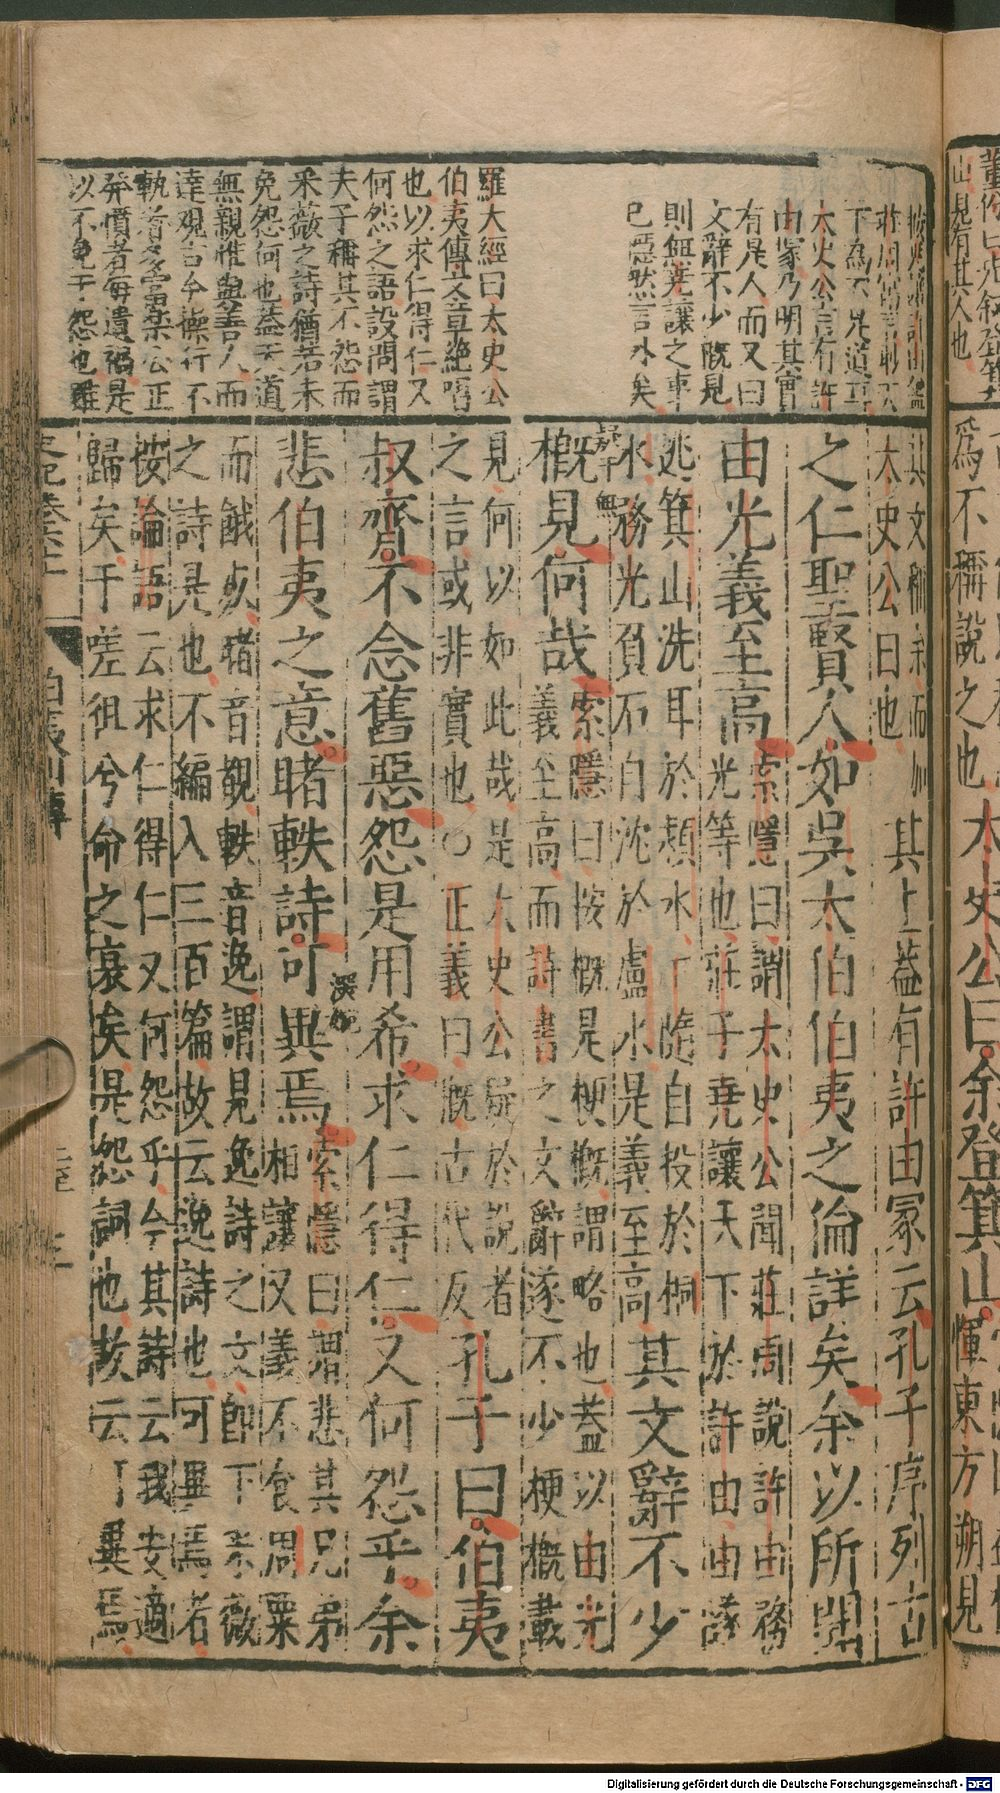 董份曰
山見有其人也
爲不稱說之也太史公曰余登箕山
惲東方朔見
下爲不
太史公言有許
由冢乃明其實
有是人而又曰
文辭不少概見
則無堯讓之事
已隱然言外矣
羅大經曰太史公
伯夷傳文章絕唱
也以求仁得仁又
何怨之語設問謂
夫子稱其不怨而
采薇之詩猶若未
免怨何也蓋天道
無親惟與善人而
達觀古今操行不
執者多富樂公正
發憤者每遺禍是
以不免于怨也雖
其文稱余而加
太史公曰也
其上蓋有許由冢云孔子序列古
之仁聖賢人如吳太伯伯夷之倫詳矣余以所聞
由光義至高
索隱曰謂太史公聞莊周說許由務
光等也莊子堯讓天下於許由由遂
逃箕山洗耳於潁水卞隨自投於桐
水務光負石自沈於盧水是義至高
其文辭不少
概見何哉
索隱曰按概是梗概謂略也蓋以由光
義至高而詩書之文辭遂不少梗概載
見何以如此哉是太史公疑於說者
之言或非實也〇正義曰概古代反
孔子曰伯夷
叔齊不念舊惡怨是用希求仁得仁又何怨乎余
悲伯夷之意睹軼詩可異焉
索隱曰謂悲其兄弟
相讓又義不食周粟
而餓死睹音覩軼音逸謂見逸詩之文即下采薇
之詩是也不編入三百篇故云逸詩也可異焉者
按論語云求仁得仁又何怨乎今其詩云我安適
歸矣于嗟徂兮命之衰矣是怨詞也故云可異焉
史記卷六十一
伯夷列傳
Digitalisierung gefördert durch die Deutsche Forschungsgemeinschaft - DFG